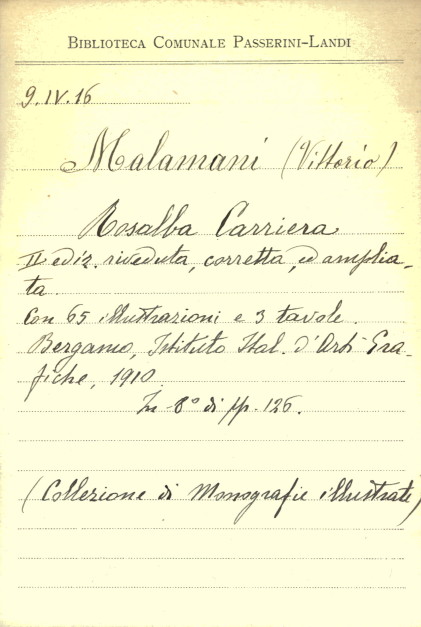 BIBLIOTECA COMUNALE PASSERINI-LANDI
9.IV.16
Malamani (Vittorio)
Rosalba Carriera
II ediz. riveduta, corretta, ed amplia-
ta.
Con 65 illustrazioni e 3 tavole.
Bergamo, Istituto Ital. d'Arti Gra-
fiche, 1910.
In 8° di pp. 126.
(Collezione di Monografie illustrate)